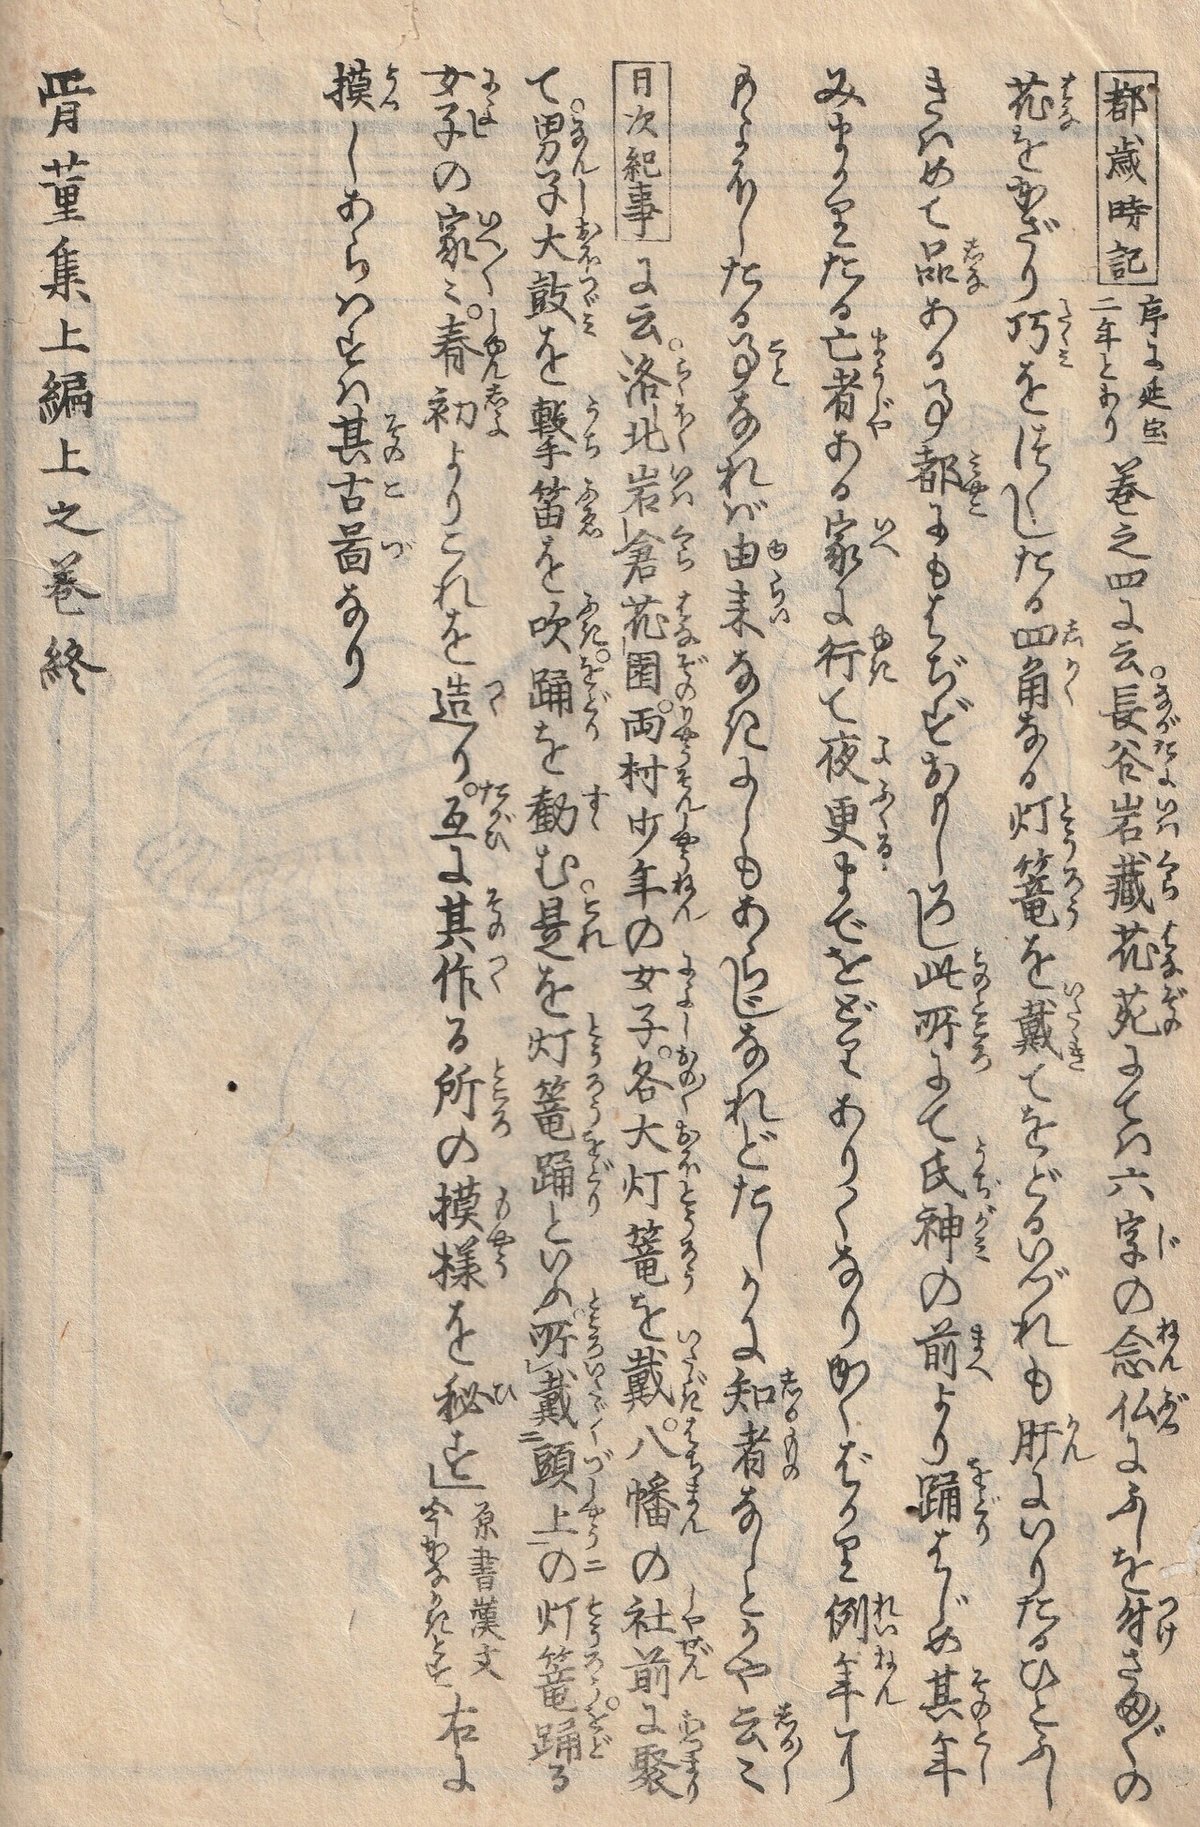 都歳時記 序に延宝二年とあり 巻之四に云長谷岩蔵花苑にては六字の念仏にふしを付さま〴〵の
花をかざり巧をつくしたる四角なる灯篭を戴てをどるいづれも肝にいりたるひとふし
きはめて品ある事都にもはぢずおもしろし此所にて氏神の前より踊はじめ其年
みまかりたる亡者ある家に行て夜更までをどりありくなりかくばかり例年に
もよほしたる事なれば由来なきにしもあらじなれどたしかに知者なしとかや云々
日次紀事 に云洛北岩倉花園両村少年の女子各大灯篭を戴八幡の社前に聚
て男子大鼓を撃笛を吹踊を勧む是を灯篭踊といふ所戴頭上の灯篭踊る
女子の家々春初よりこれを造り互に其作る所の摸様を秘す 原書漢文今かながきとす 右に
摸しあらはすは其古図なり
骨董集上編上之巻終